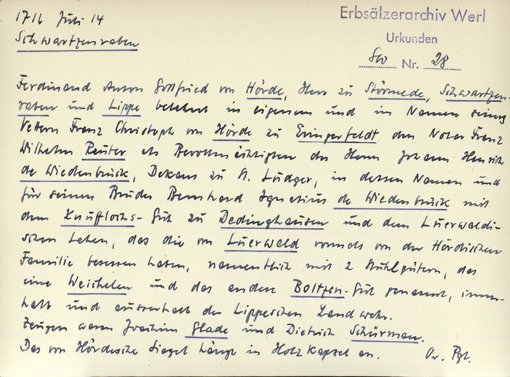 1716 Juli 14
Schwartzenraben
Erbsälzerarchiv Werl
Urkunden
Nr. 28
Ferdinand Anton Gottfried von Hörde, Herr zu Störmede, Schwartzen-
raben und Lippe belehnt in eigenem und im Namen seines
Vettern Franz Christoph von Hörde zu Eringerfeldt den Notar Franz
Wilhelm Reuter als Bevollmächtigten des Herrn Johann Henrich
de Wiedenbrück, Dekans zu St. Ludger, in dessen Namen und
für seinen Bruder Bernhard Ignatius de Wiedenbrück mit
dem Knufflochs-Gut zu Dedinghausen und dem Luerwaldi-
schen Lehen, das die von Luerwald vormals von der Hördischen
Familie besessen haben, namentlich mit 2 Kuhlgütern, das
eine Weichelen und das andere Boltzen-Gut genannt, inner-
halb und ausserhalb der Lippeschen Landwehr.
Zeugen waren Joachim Glade und Dietrich Schürman.
Das von Hördesche Siegel hängt in Holzkapsel an. Or. Pgt.